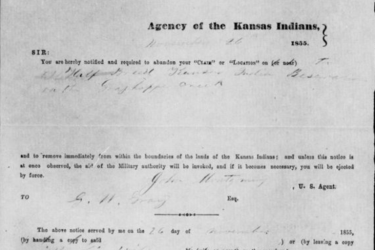 Agency of the Kansas Indians,
1855.
SIR:
You are hereby notified and required to abandon your "CLAIM" or "LOCATION" on (or near) the
Half east Kansas Indian
on the Creek
and to remove immediately from within the boundaries of the lands of the Kansas Indians; and unless this notice is
at once observed, the aid of the Military authority will be invoked, and if it becomes necessary, you will be ejected
by force.
John Montgomery
U. S. Agent.
TO Esq.
The above notice served by me on the 26 day of November 1855,
(by handing a copy to said ) or (by leaving a copy